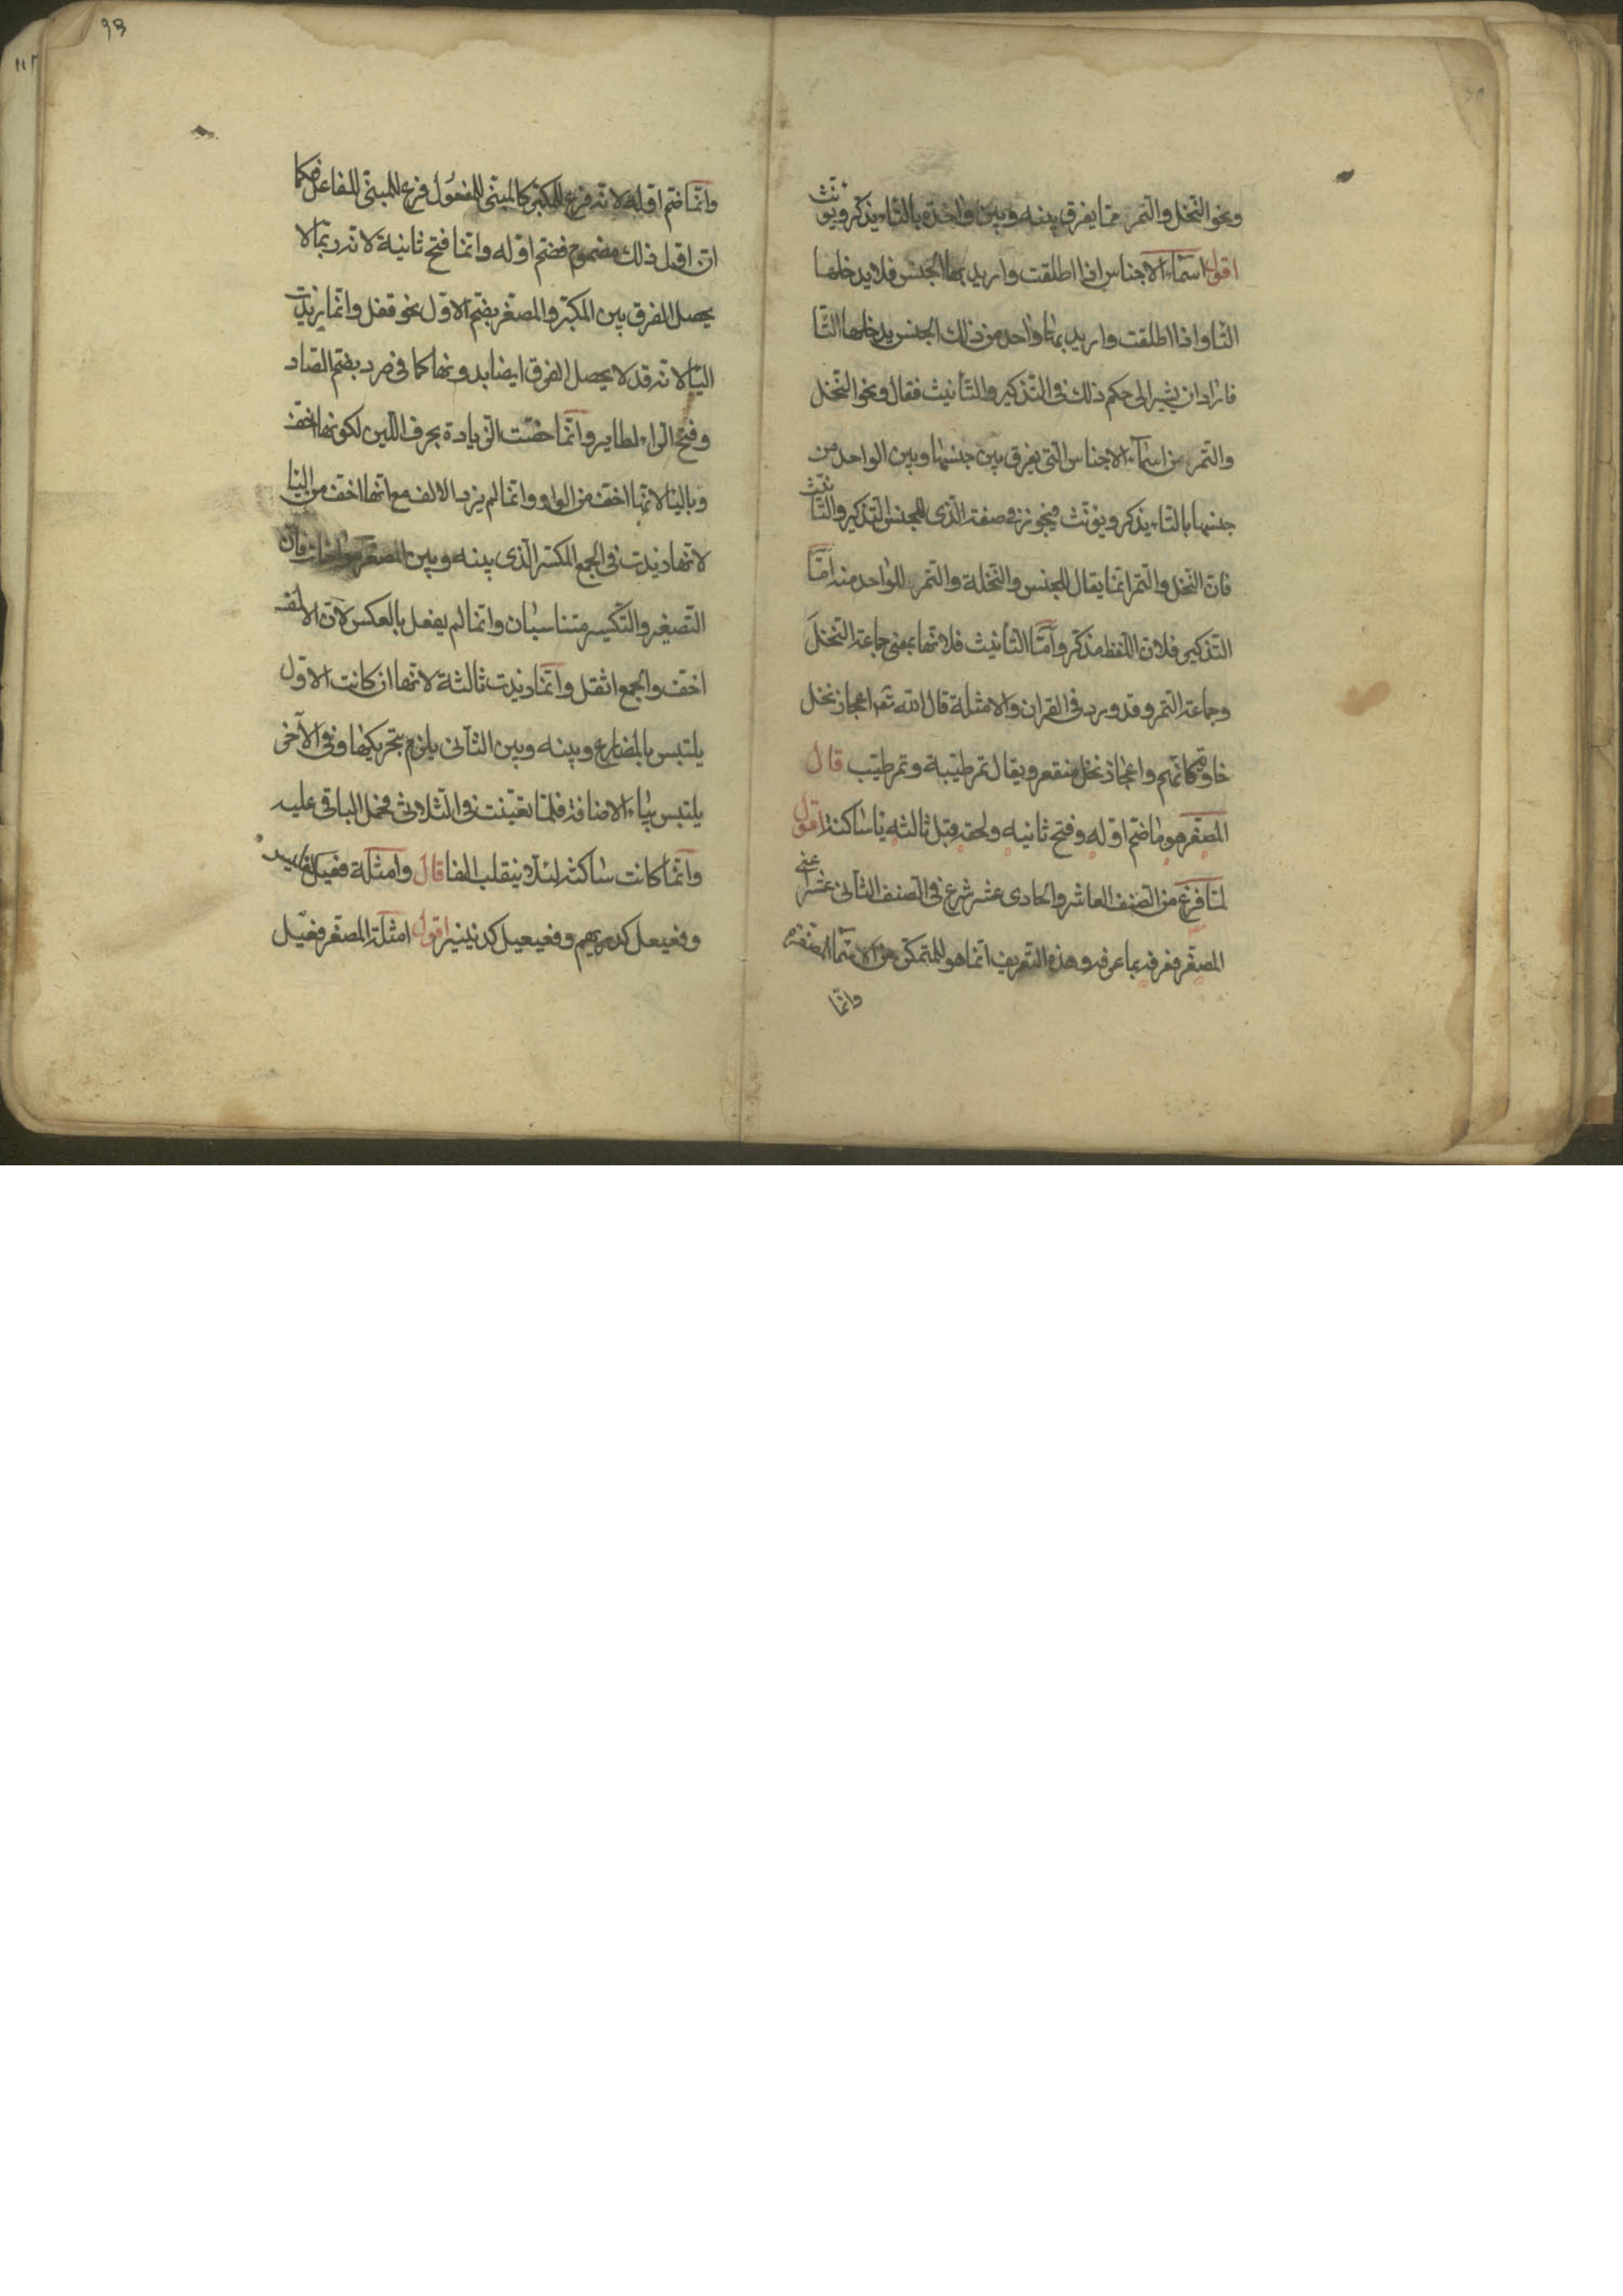 ونحو النخل والتمر مما يفرق بينه وبين واحده بالتاء يذكر ويؤنث
اقول اسماء الاجناس اذا اطلقت واريد بها الجنس فلا يدخلها
التا واذا اطلقت واريد بها واحد من ذلك الجنس يدخلها التا
فاراد ان يشير الى حكم ذلك في التذكير والتأنيث فقال ونحو النخل
والتمر من اسماء الاجناس التي يفرق بين جنسها وبين الواحد من
جنسها بالتاء يذكر ويؤنث فيجوز في صفة الذي للجنس التذكير والتأنيث
فان النخل والتمر انما يقال للجنس والنخلة والتمر للواحد منه اما
التذكير فلان اللفظ مذكر واما التأنيث فلانها بمعنى جماعة النخل
وجماعة التمر وقد ورد في القران والامثلة قال الله تعـ اعجاز نخل
خاوية كانهم واعجاز نخل منقعر ويقال تمر طيبة وتمر طيب قال
المصغر هو ما ضم اوله وفتح ثانيه ولحقه قبل ثالثه يا ساكنة اقول
لما فرغ من الصنف العاشر والحادى عشر شرع في الصنف الثانى عشر اعنى
المصغر فعرفه بما عرفه وهذه التعريف انما هو للمتمكن من الاسماء المصغرة
وانما
93
112
وانما ضم اوله لانه فرع للمكبر كالمبنى للمفعول فرع للمبنى للفاعل فكما
ان اول ذلك مضموم فضم اوله وانما فتح ثانية لانه ربما لا
يحصل الفرق بين المكبر والمصغر بضم الاول نحو قفل وانما زيدت
اليا لانه قد لا يحصل الفرق ايضا بدونها كما في صرد بضم الصاد
وفتح الراء لطاير وانما خصت الزيادة بحرف اللين لكونها اخف
وباليا لانها اخف من الواو وانما لم يزد الالف مع انها اخف من اليا
لانها زيدت في الجمع المكسر الذى بينه وبين المصغر مواخات فان
التصغير والتكسير متناسبان وانما لم يفعل بالعكس لان الالف
اخف والجمع اثقل وانما زيدت ثالثة لانها ان كانت الاول
يلتبس بالمضارع وبينه وبين الثانى يلزم تحريكها وفى الآخر
يلتبس بياء الاضافة فلما تعينت في الثلاثى فحمل الباقى عليه
وانما كانت ساكنة لئلا ينقلب الفا قال وامثلة فعيل كفليس
وفعيعل كدريهم وفعيعيل كدنينير اقول امثلة المصغر فعيل